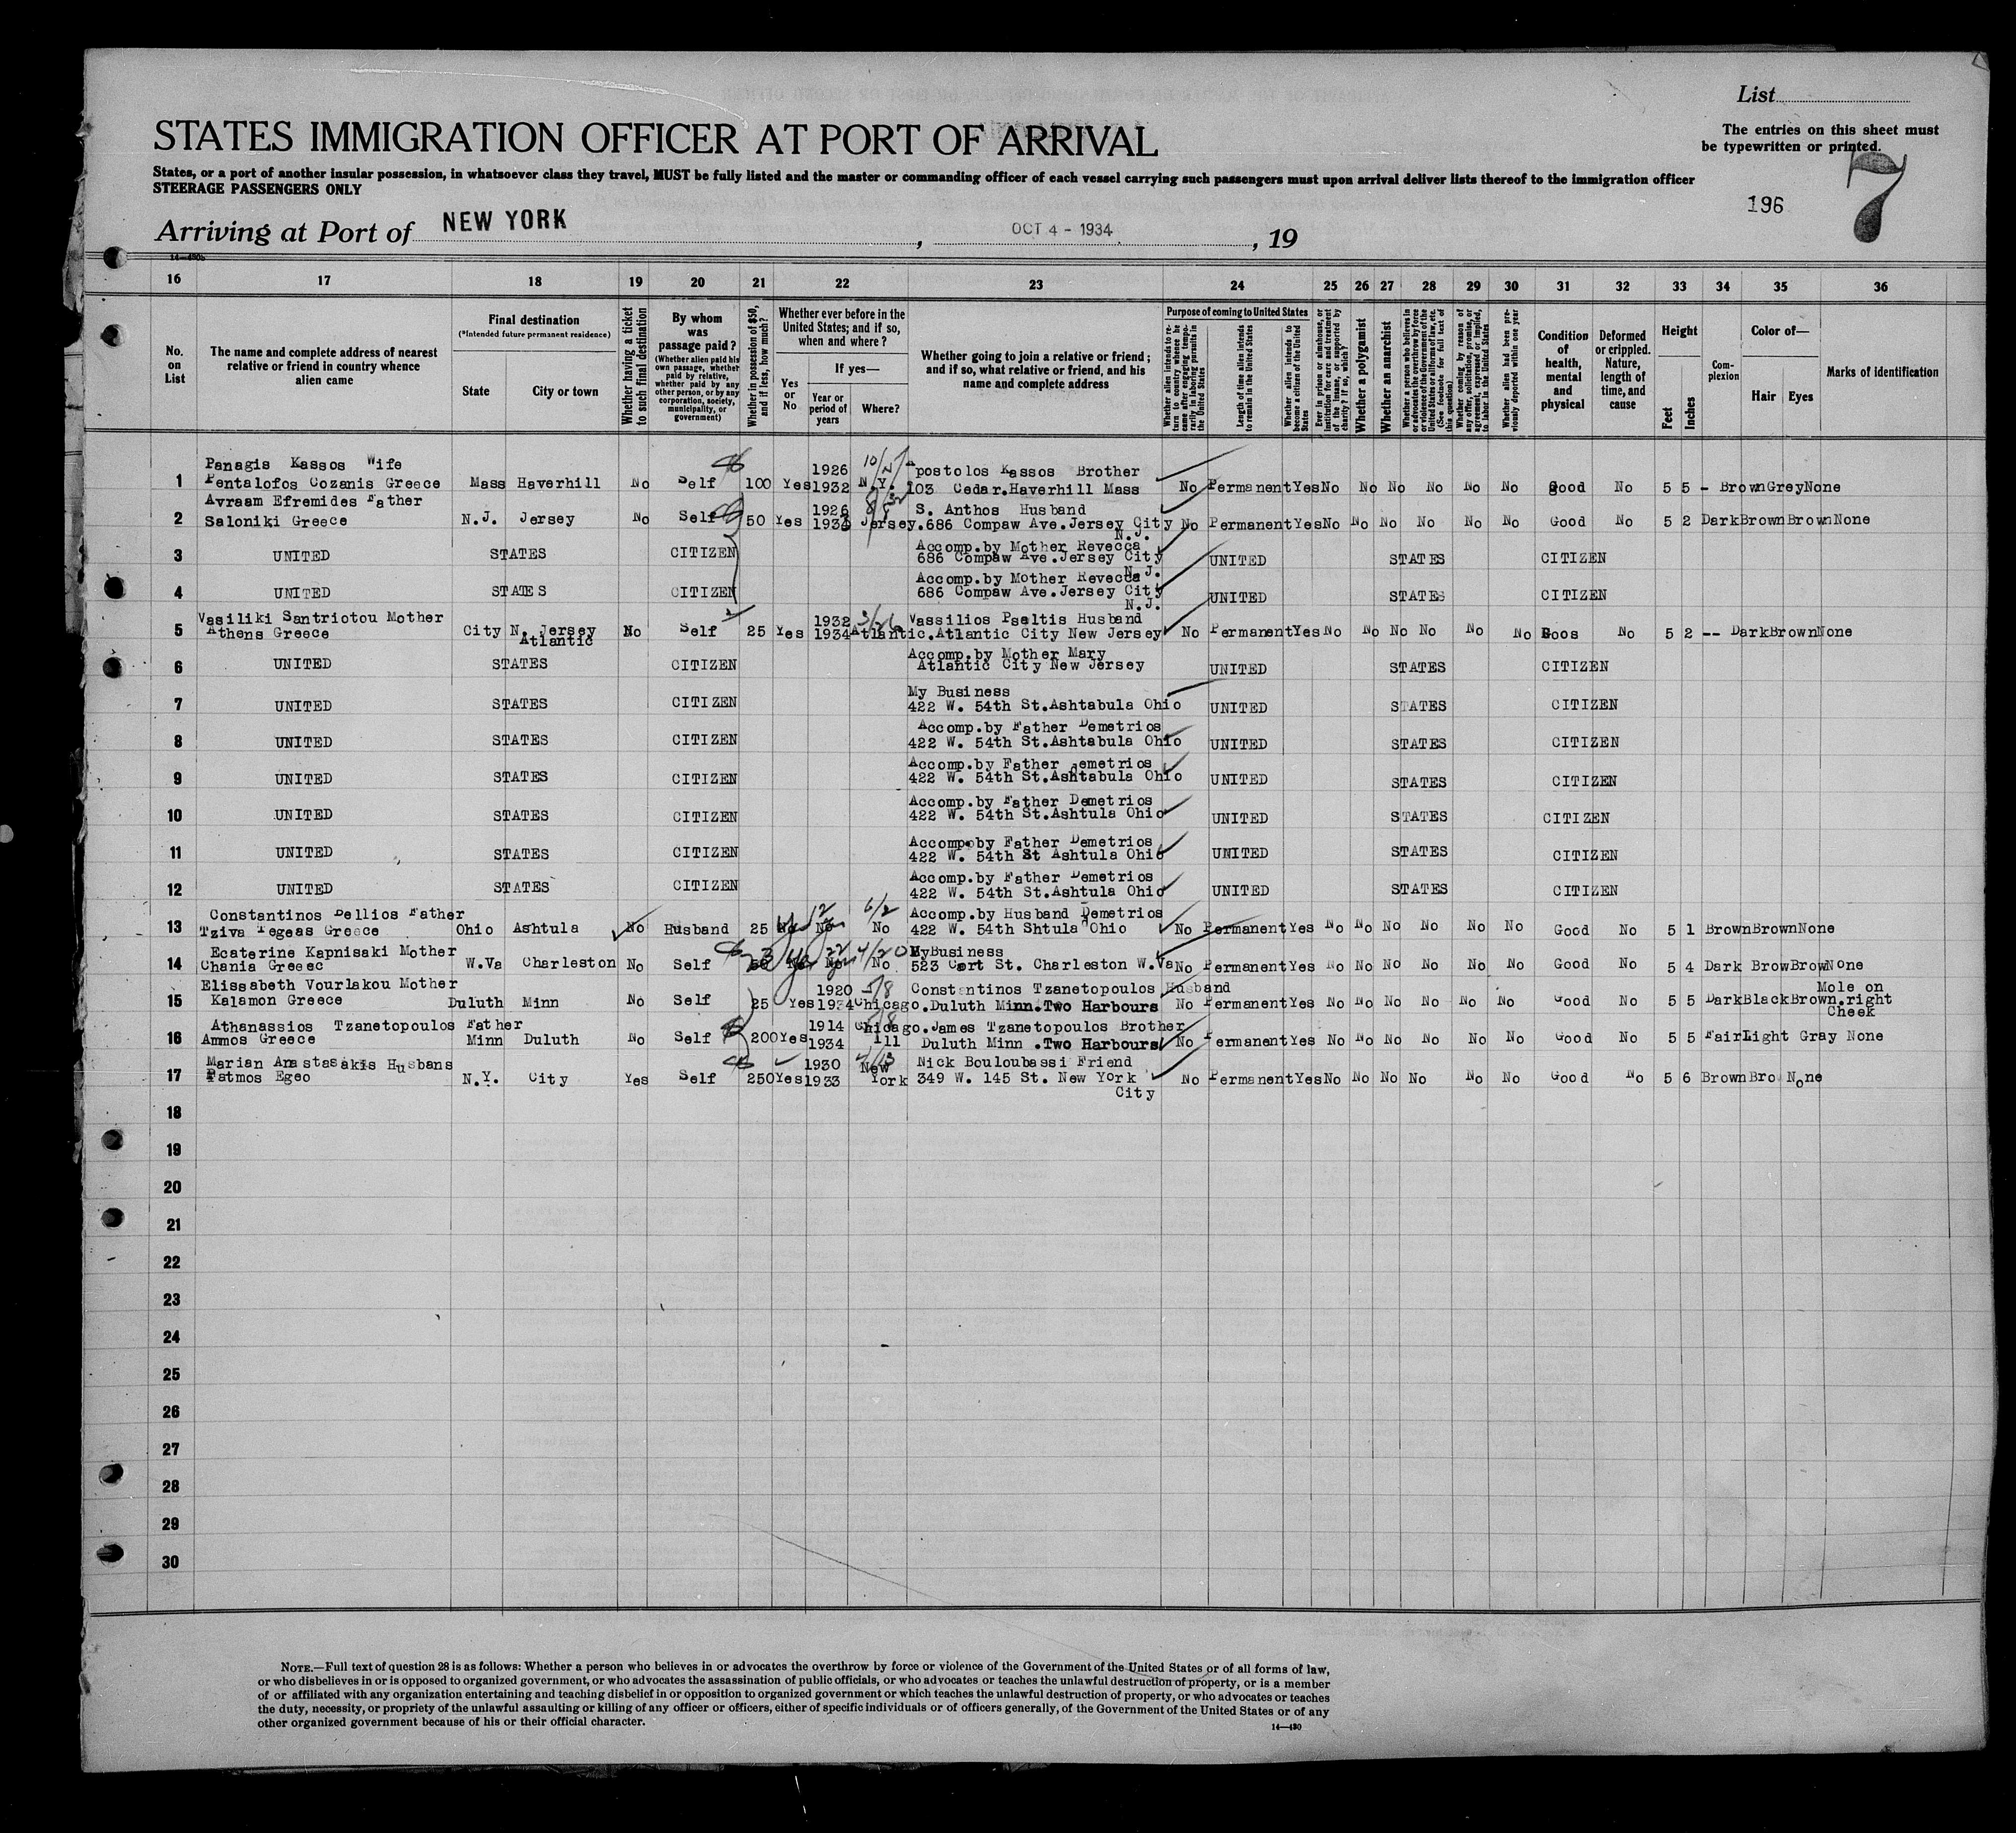 List
The entries on this sheet must
be typewritten or printed.
STATES IMMIGRATION OFFICER AT PORT OF ARRIVAL
States, or a port of another insular possession, in whatsoever class they travel, MUST be fully listed and the master or commanding officer of each vessel carrying such passengers must upon arrival deliver lists thereof to the immigration officer
STEERAGE PASSENGERS ONLY
196 7
Arriving at Port of NEW YORK, OCT 4 - 1934, 19
14—430b
16 17 18 19 20 21 22 23 24 25 26 27 28 29 30 31 32 33 34 35 36
No.
on
List
The name and complete address of nearest
relative or friend in country whence
alien came
Final destination
(*Intended future permanent residence)
State City or town
Whether having a ticket
to such final destination
By whom
was
passage paid?
(Whether alien paid his
own passage, whether
paid by relative,
whether paid by any
other person, or by any
corporation, society,
municipality, or
government)
Whether in possession of $50,
and if less, how much?
Whether ever before in the
United States; and if so,
when and where?
Yes
or
No
If yes—
Year or
period of
years
Where?
Whether going to join a relative or friend;
and if so, what relative or friend, and his
name and complete address
Purpose of coming to United States
Whether alien intends to re-
turn to country whence he
came after engaging tempo-
rarily in laboring pursuits in
the United States
Length of time alien intends
to remain in the United States
Whether alien intends to
become a citizen of the United
States
Ever in prison or almshouse, or
institution for care and treatment
of the insane, or supported by
charity? If so, which?
Whether a polygamist
Whether an anarchist
Whether a person who believes in
or advocates the overthrow by force
or violence of the Government of the
United States or all forms of law, etc.
(See footnote for full text of
this question)
Whether coming by reason of
any offer, solicitation, promise, or
agreement, expressed or implied,
to labor in the United States
Whether alien had been pre-
viously deported within one year
Condition
of
health,
mental
and
physical
Deformed
or crippled.
Nature,
length of
time, and
cause
Height
Feet Inches
Com-
plexion
Color of—
Hair Eyes
Marks of identification
Panagis Kassos Wife 1926 10/ Apostolos Kassos Brother
1 Pentalofos Cozanis Greece Mass Haverhill No Self 100 Yes 1932 N.Y. 103 Cedar.Haverhill Mass No Permanent Yes No No No No No No Good No 5 5 - Brown Grey None
Avraam Efremides Father 1926 S. Anthos Husband
2 Saloniki Greece N.J. Jersey No Self 50 Yes 193 Jersey.686 Compaw Ave.Jersey City No Permanent Yes No No No No No No Good No 5 2 Dark Brown Brown None
N.J.
Accomp.by Mother Revecca
3 UNITED STATES CITIZEN 686 Compaw Ave.Jersey City UNITED STATES CITIZEN
N.J.
Accomp.by Mother Revecca
4 UNITED STATES CITIZEN 686 Compaw Ave.Jersey City UNITED STATES CITIZEN
N.J.
Vasiliki Santriotou Mother 1932 3/26 Vassilios Pseltis Husband
5 Athens Greece City N. Jersey No Self 25 Yes 1934 Atlantic.Atlantic City New Jersey No Permanent Yes No No No No No No Goos No 5 2 -- Dark Brown None
Atlantic
Accomp.by Mother Mary
6 UNITED STATES CITIZEN Atlantic City New Jersey UNITED STATES CITIZEN
My Business
7 UNITED STATES CITIZEN 422 W. 54th St.Ashtabula Ohio UNITED STATES CITIZEN
Accomp.by Father Demetrios
8 UNITED STATES CITIZEN 422 W. 54th St.Ashtabula Ohio UNITED STATES CITIZEN
Accomp.by Father Demetrios
9 UNITED STATES CITIZEN 422 W. 54th St.Ashtabula Ohio UNITED STATES CITIZEN
Accomp.by Father Demetrios
10 UNITED STATES CITIZEN 422 W. 54th St.Ashtula Ohio UNITED STATES CITIZEN
Accomp.by Father Demetrios
11 UNITED STATES CITIZEN 422 W. 54th St Ashtula Ohio UNITED STATES CITIZEN
Accomp.by Father Demetrios
12 UNITED STATES CITIZEN 422 W. 54th St.Ashtula Ohio UNITED STATES CITIZEN
Constantinos Dellios Father 12 6/2 Accomp.by Husband Demetrios
13 Tziva Tegeas Greece Ohio Ashtula No Husband 25 No No No 422 W. 54th Shtula Ohio No Permanent Yes No No No No No No Good No 5 1 Brown Brown None
Ecaterine Kapnisaki Mother 4/20 MyBusiness
14 Chania Greeec W.Va Charleston No Self No No 523 Cort St. Charleston W.Va No Permanent Yes No No No No No No Good No 5 4 Dark Brow Brow None
Elissabeth Vourlakou Mother 1920 5/8 Constantinos Tzanetopoulos Husband Mole on
15 Kalamon Greece Duluth Minn No Self 25 Yes 1934 Chicago.Duluth Minn.Two Harbours No Permanent Yes No No No No No No Good No 5 5 Dark Black Brown.right
Cheek
Athanassios Tzanetopoulos Father 1914 Chicago.James Tzanetopoulos Brother
16 Ammos Greece Minn Duluth No Self 200 Yes 1934 Ill Duluth Minn .Two Harbours No Permanent Yes No No No No No No Good No 5 5 Fair Light Gray None
Marian Anastasakis Husbans 1930 4/13 New Nick Bouloubassi Friend
17 Patmos Egeo N.Y. City Yes Self 250 Yes 1933 York 349 W. 145 St. New York No Permanent Yes No No No No No No Good No 5 6 Brown Bro None
City
18
19
20
21
22
23
24
25
26
27
28
29
30
NOTE.—Full text of question 28 is as follows: Whether a person who believes in or advocates the overthrow by force or violence of the Government of the United States or of all forms of law,
or who disbelieves in or is opposed to organized government, or who advocates the assassination of public officials, or who advocates or teaches the unlawful destruction of property, or is a member
of or affiliated with any organization entertaining and teaching disbelief in or opposition to organized government or which teaches the unlawful destruction of property, or who advocates or teaches
the duty, necessity, or propriety of the unlawful assaulting or killing of any officer or officers, either of specific individuals or of officers generally, of the Government of the United States or of any
other organized government because of his or their official character.
14—430